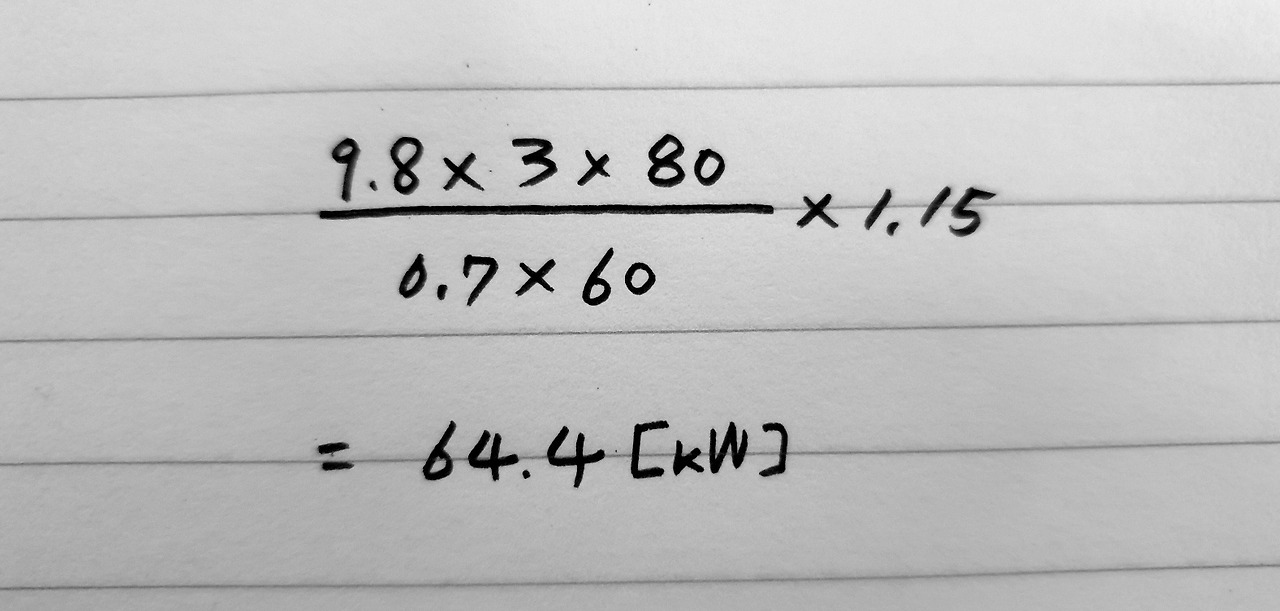 9.8 × 3 × 80
0.7 × 60
× 1.15
= 64.4 [kW]